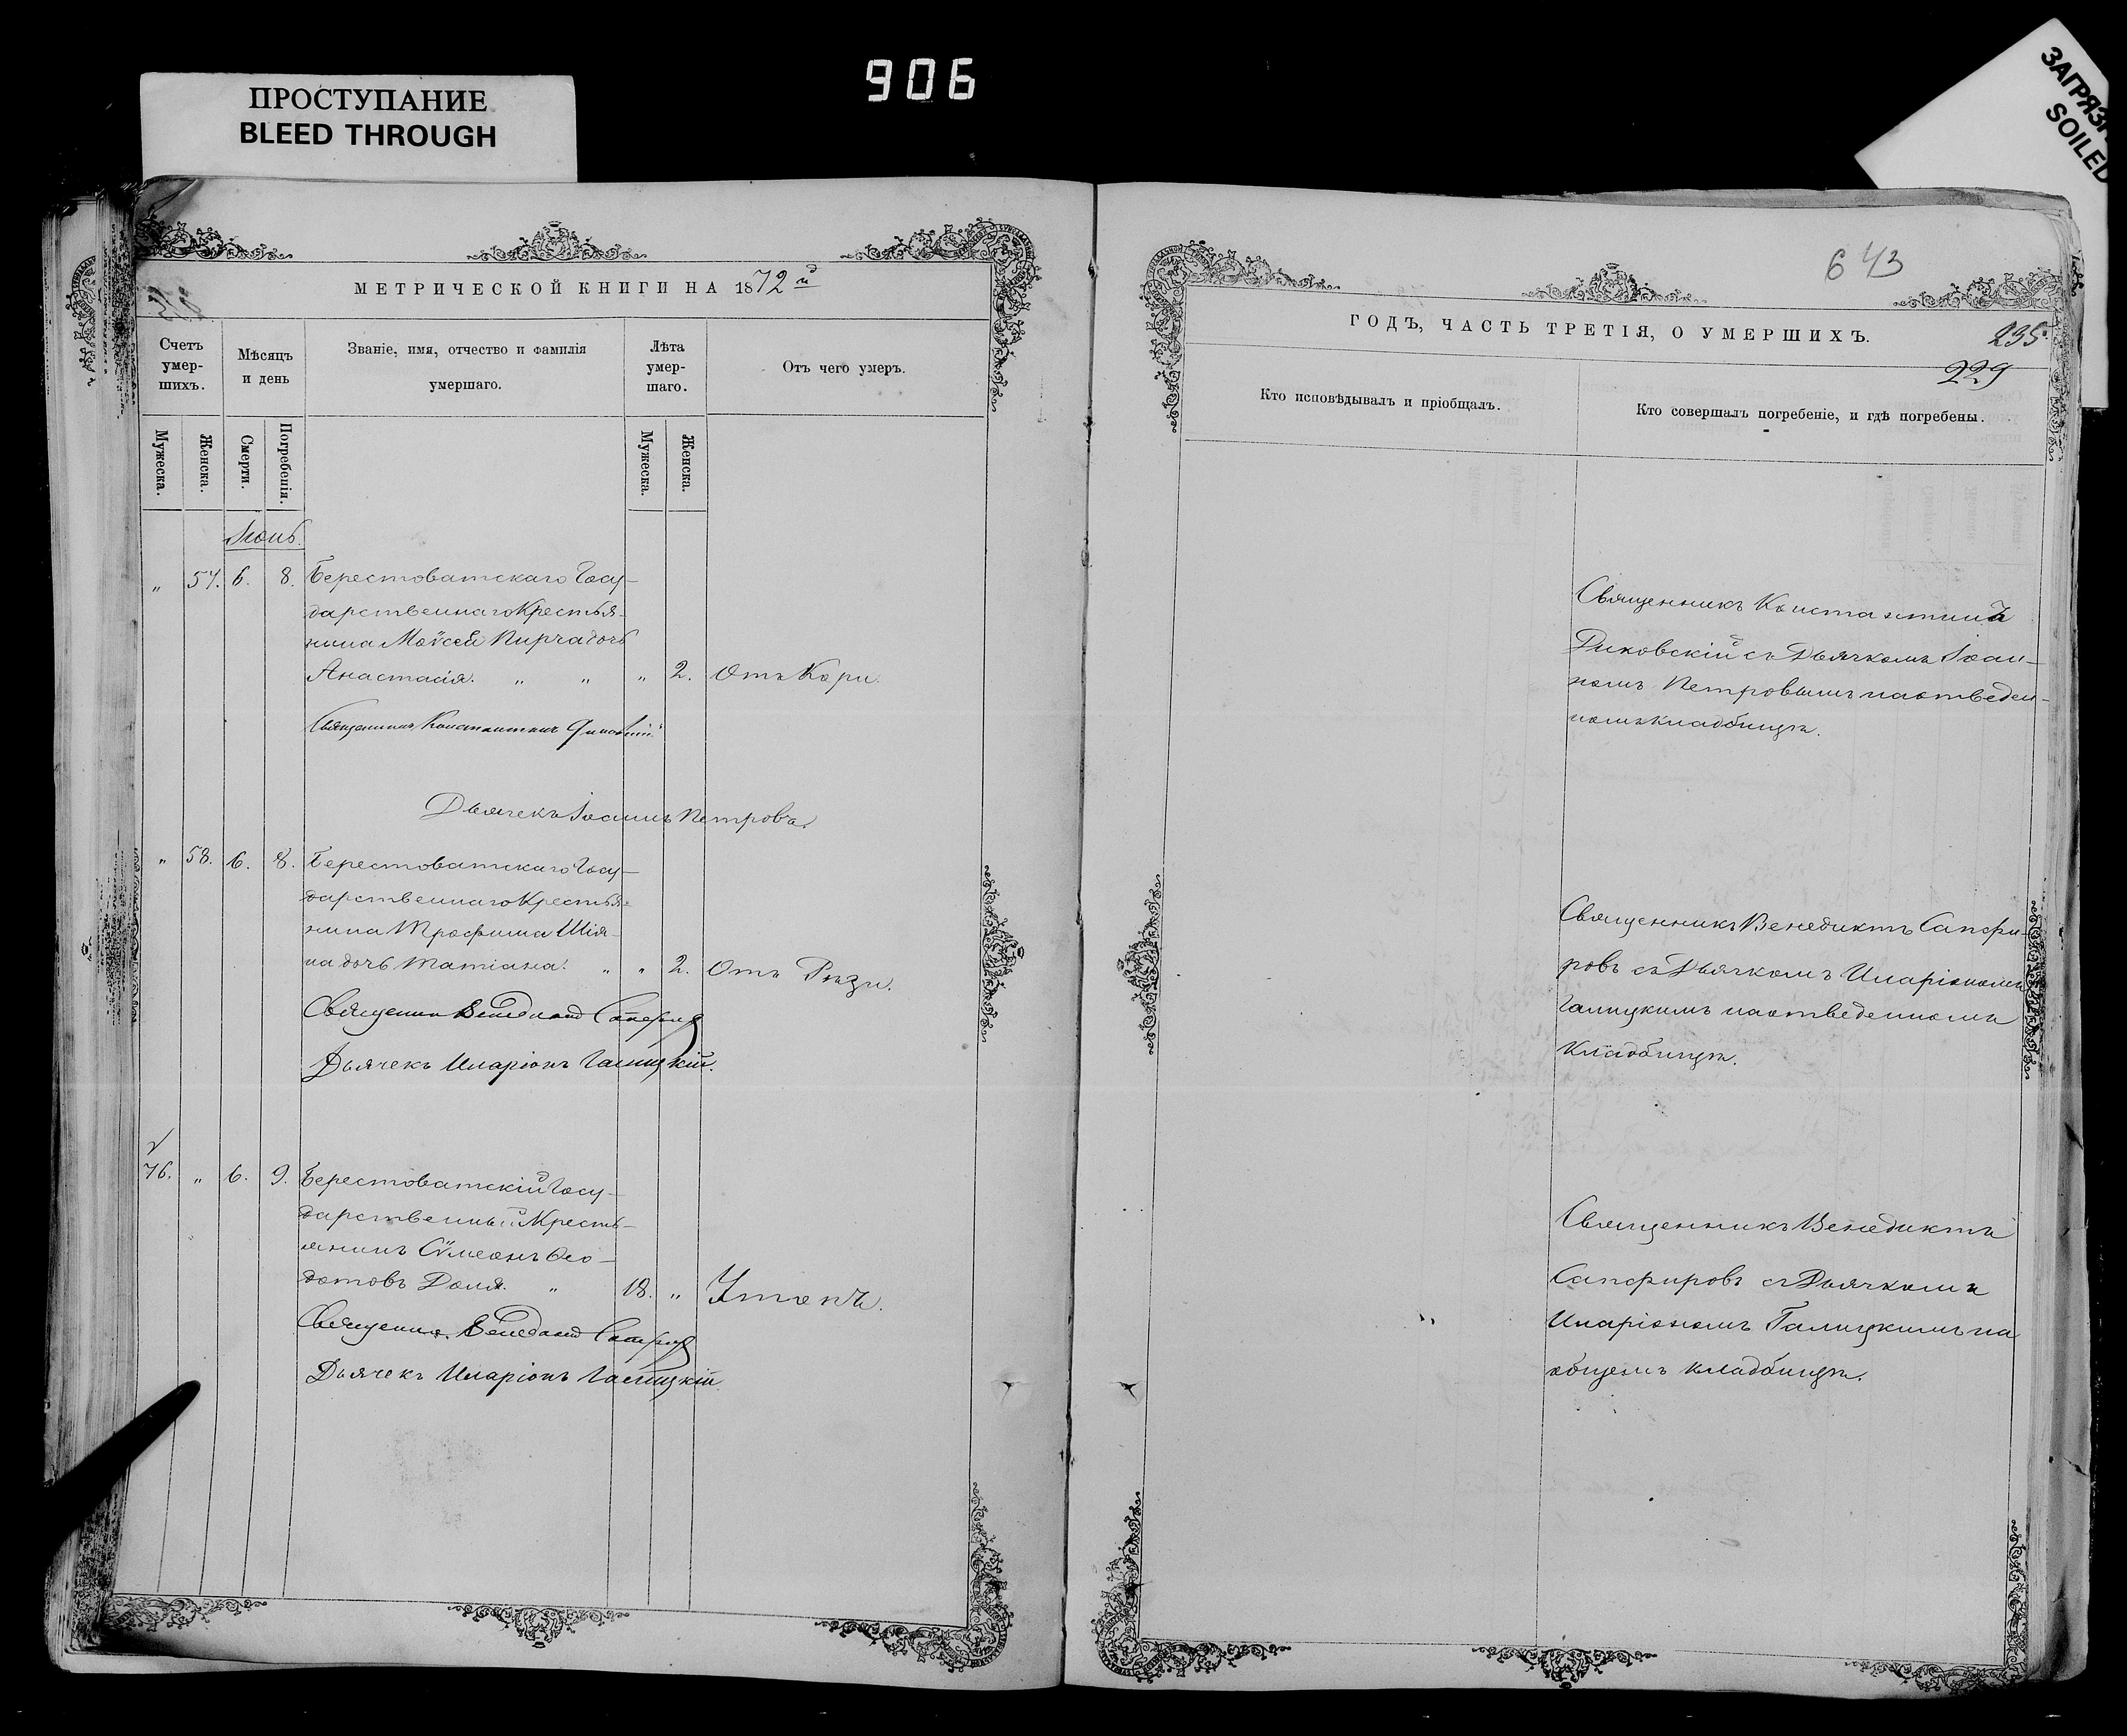 906
ПРОСТУПАНИЕ
BLEED THROUGH
SOILED
МЕТРИЧЕСКОЙ КНИГИ НА 1872 й
Счетъ умер-шихъ.
Мѣсяцъ и день
Званіе, имя, отчество и фамилія умершаго.
Лѣта умер-шаго.
Отъ чего умеръ.
Мужеска.
Женска.
Смерти.
Погребенія.
Мужеска.
Женска.
Іюнь.
„ 57. 6. 8. Берестоватскаго Госу-
дарственнаго Крестья-
нина Моѵсея Пирча дочь
Анастасія. „ „ „ 2. Отъ Кори.
Священникъ Константинъ
Дьячекъ Іоаннъ Петровъ.
„ 58. 6. 8. Берестоватскаго Госу-
дарственнаго Крестья-
нина Трофима Шія-
на дочь Татіана. „ „ 2. Отъ Рѣзи.
Священник Венедикт Сапфиров
Дьячекъ Иларіонъ Галицкій.
76. „ 6. 9. Берестоватскій Госу-
дарственный Кресть-
янинъ Сѵмеонъ Ѳео-
дотовъ Доля. „ 18. „ Утопъ.
Священник Венедикт Сапфиров
Дьячекъ Иларіонъ Галицкій
643
ГОДЪ, ЧАСТЬ ТРЕТІЯ, О УМЕРШИХЪ.
235.
229
Кто исповѣдывалъ и пріобщалъ.
Кто совершалъ погребеніе, и гдѣ погребены.
Священникъ Константинъ
Диковскій съ Дьячкомъ Іоан-
номъ Петровымъ на отведен-
номъ кладбищѣ.
Священникъ Венедиктъ Сапфи-
ровъ съ Дьячкомъ Иларіономъ
Галицкимъ на отведенномъ
кладбищѣ.
Священникъ Венедиктъ
Сапфировъ съ Дьячкомъ
Иларіономъ Галицкимъ на
общемъ кладбищѣ.